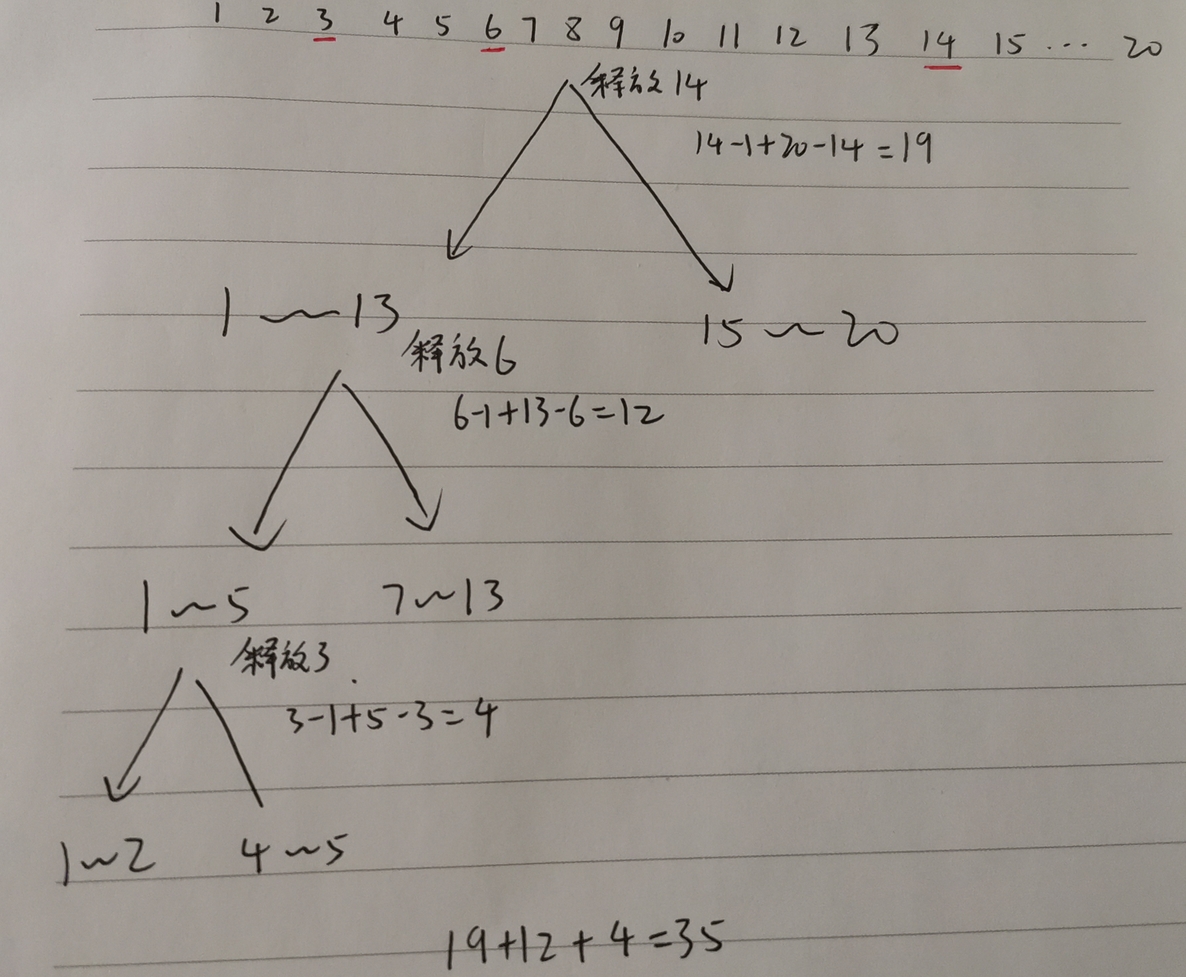 1 2 3 4 5 6 7 8 9 10 11 12 13 14 15 ... 20
释放14
14-1+20-14=19
1~13
15~20
释放6
6-1+13-6=12
1~5
7~13
释放3
3-1+5-3=4
1~2
4~5
19+12+4=35